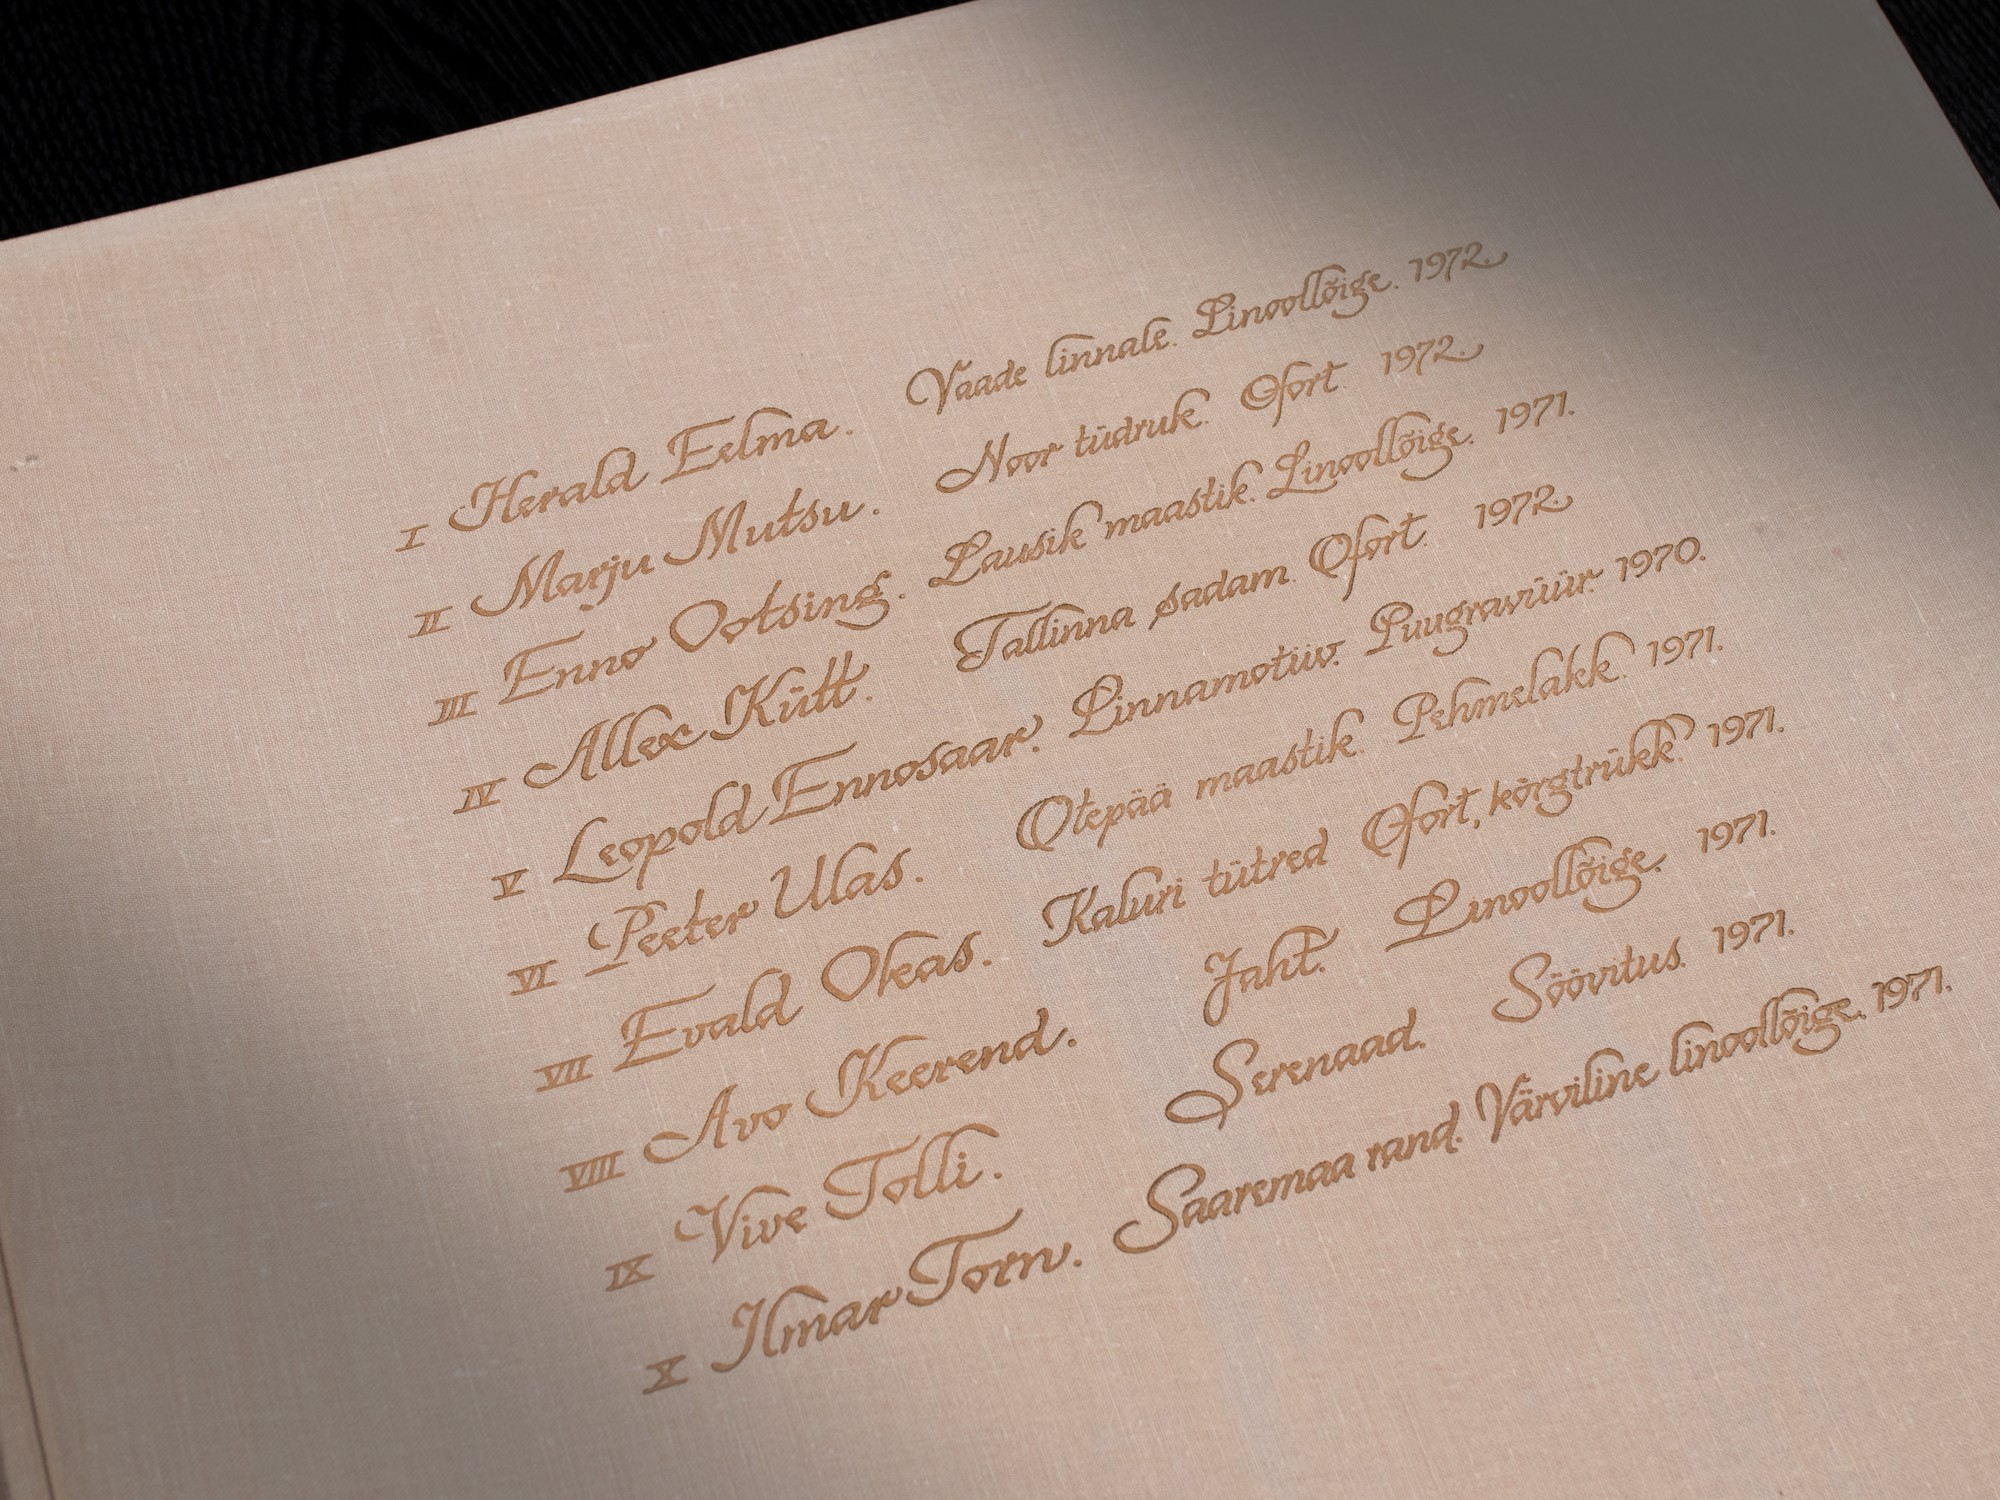 I Herald Eelma. Vaade linnale. Linoollõige. 1972.
II Marju Mutsu. Noor tüdruk. Ofort 1972.
III Enno Ootsing. Lausik maastik. Linoollõige. 1971.
IV Allex Kütt. Tallinna sadam. Ofort. 1972.
V Leopold Ennosaar. Linnamotiiv. Puugravüür. 1970.
VI Peeter Ulas. Otepää maastik. Pehmelakk. 1971.
VII Evald Okas. Kaluri tütred Ofort, kõrgtrükk. 1971.
VIII Avo Keerend. Jaht. Linoollõige. 1971.
IX Vive Tolli. Serenaad. Söövitus. 1971.
X Ilmar Torn. Saaremaa rand. Värviline linoollõige. 1971.